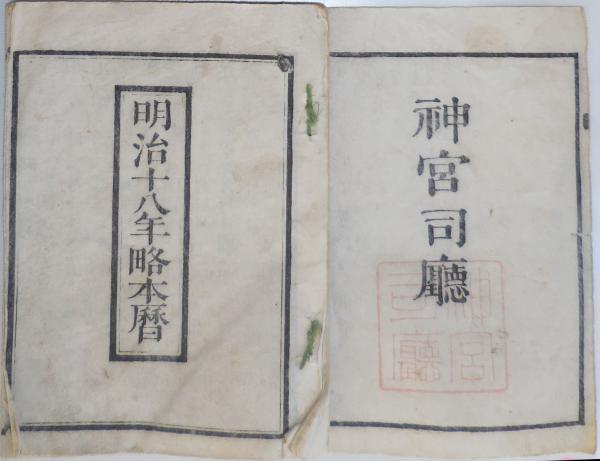 神宮司廳
神宮
司廳
明治十八年略本暦